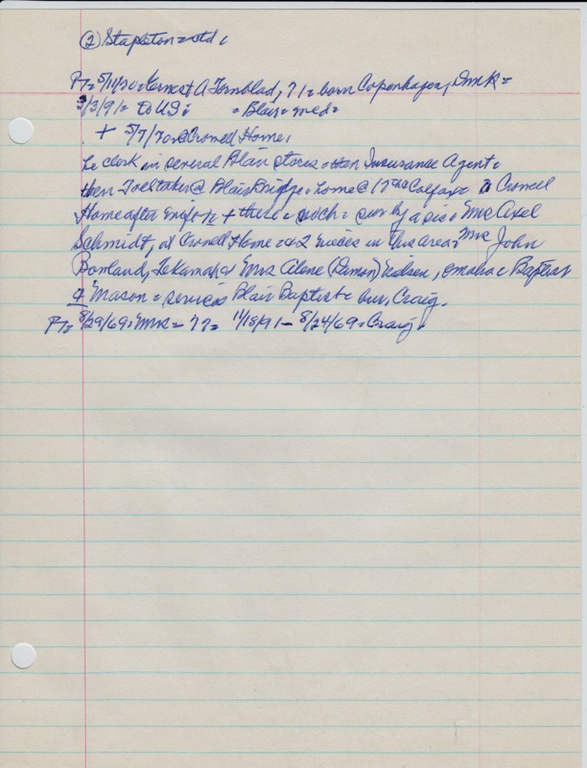 (2) Stapleton = std.
PT = 5/11/70 = Ernest A Tornblad, 71 = born Copenhagen, Dmk =
3/3/91 = to US = Blair = med =
+ 5/7/70 @ Crowell Home.
he clerk in several Blair stores = then Insurance Agent =
then Tolltaker @ Blair Bridge = home @ 17th Colfax = Crowell
Home after wife + there = such = surv by a sis = Mrs Axel
Schmidt, at Crowell Home = & 2 nieces in this area = Mrs John
Bonland, Tekamah & Mrs Alene (Demon) Nielsen, Omaha = Baptist
& Mason = services Blair Baptist = bur. Craig.
PT = 8/29/69 = Mrs = 77 = 11/18/91 - 8/24/69 = Craig.